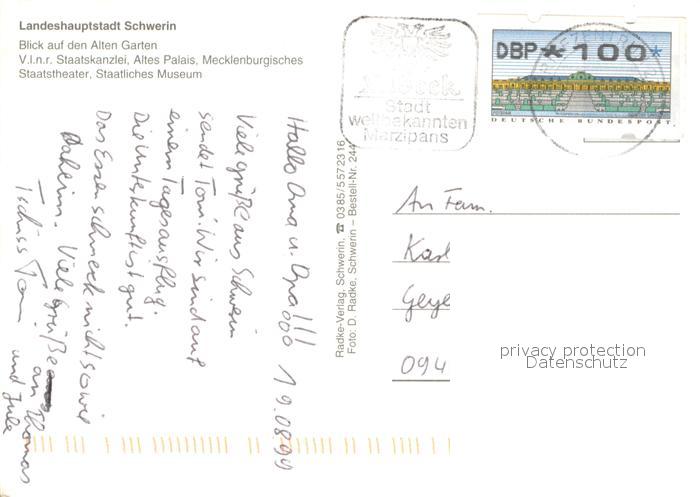 Landeshauptstadt Schwerin
Blick auf den Alten Garten
V.l.n.r. Staatskanzlei, Altes Palais, Mecklenburgisches
Staatstheater, Staatliches Museum
Stadt
weltbekannten
Marzipans
DBP * 100 *
DEUTSCHE BUNDESPOST
Hallo Oma u. Opa!!!
Viele grüße aus Schwerin
sendet Tom. Wir sind auf
einem Tagesausflug.
Die Unterkunft ist gut.
Das Essen schmeck nicht so wie
Daheim. Viele grüße
an Thomas
und Jule
Tschüss Tom
Radke-Verlag, Schwerin, ☎ 0385/5572316
Foto: D. Radke, Schwerin – Bestell-Nr. 244
An Fam.
Karl
Geye
094
privacy protection
Datenschutz